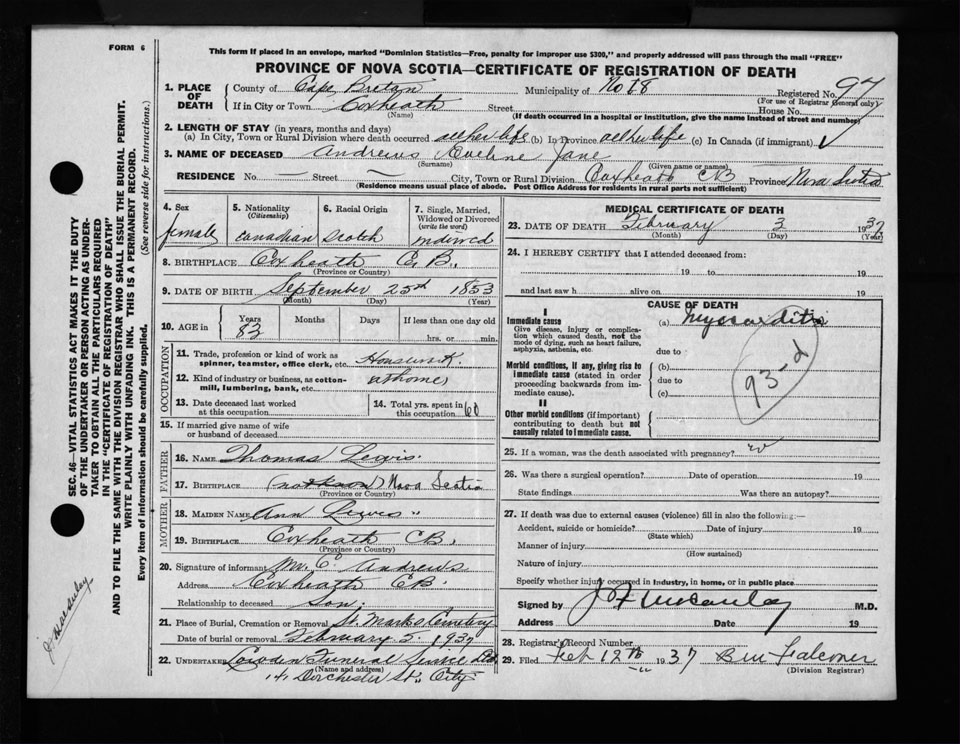 FORM 6
This form if placed in an envelope, marked "Dominion Statistics—Free, penalty for improper use $300," and properly addressed will pass through the mail "FREE"
PROVINCE OF NOVA SCOTIA—CERTIFICATE OF REGISTRATION OF DEATH
SEC. 46—VITAL STATISTICS ACT MAKES IT THE DUTY
OF THE UNDERTAKER OR PERSON ACTING AS UNDER-
TAKER TO OBTAIN ALL THE PARTICULARS REQUIRED
IN THE "CERTIFICATE OF REGISTRATION OF DEATH"
AND TO FILE THE SAME WITH THE DIVISION REGISTRAR WHO SHALL ISSUE THE BURIAL PERMIT.
WRITE PLAINLY WITH UNFADING INK. THIS IS A PERMANENT RECORD.
Every item of information should be carefully supplied. (See reverse side for instructions.)
1. PLACE OF DEATH
County of Cape Breton Municipality of No 18 Registered No. 97
(For use of Registrar General only)
If in City or Town Coxheath Street House No.
(Name) (If death occurred in a hospital or institution, give the name instead of street and number)
2. LENGTH OF STAY (in years, months and days)
(a) In City, Town or Rural Division where death occurred all her life (b) In Province all her life (c) In Canada (if immigrant)
3. NAME OF DECEASED Andrews Eveline Jane
(Surname) (Given name or names)
RESIDENCE No. — Street — City, Town or Rural Division Coxheath CB Province Nova Scotia
(Residence means usual place of abode. Post Office Address for residents in rural parts not sufficient)
4. Sex
female
5. Nationality
(Citizenship)
Canadian
6. Racial Origin
Scotch
7. Single, Married,
Widowed or Divorced
(write the word)
widowed
8. BIRTHPLACE Coxheath C.B.
(Province or Country)
9. DATE OF BIRTH September 25th 1853
(Month) (Day) (Year)
10. AGE in Years Months Days If less than one day old
83 hrs. or min.
OCCUPATION
11. Trade, profession or kind of work as
spinner, teamster, office clerk, etc. Housework
12. Kind of industry or business, as cotton-
mill, lumbering, bank, etc. at home
13. Date deceased last worked
at this occupation
14. Total yrs. spent in
this occupation 60
15. If married give name of wife
or husband of deceased
FATHER
16. NAME Thomas Lewis
17. BIRTHPLACE (not known) Nova Scotia
(Province or Country)
MOTHER
18. MAIDEN NAME Ann Lewis "
19. BIRTHPLACE Coxheath CB,
(Province or Country)
20. Signature of informant Mr. C. Andrews
Address Coxheath CB.
Relationship to deceased son.
21. Place of Burial, Cremation or Removal St. Marks Cemetery
Date of burial or removal February 5. 1937
22. UNDERTAKER Cowden Funeral Service Ltd
(Name and address)
141 Dorchester St., City
MEDICAL CERTIFICATE OF DEATH
23. DATE OF DEATH February 3 1937
(Month) (Day) (Year)
24. I HEREBY CERTIFY that I attended deceased from:
19 to 19
and last saw h alive on 19
CAUSE OF DEATH
I
Immediate cause
Give disease, injury or complica-
tion which caused death, not the
mode of dying, such as heart failure,
asphyxia, asthenia, etc.
(a) Myocarditis
due to
Morbid conditions, if any, giving rise to
immediate cause (stated in order
proceeding backwards from im-
mediate cause).
(b)
due to
(c)
93-d
II
Other morbid conditions (if important)
contributing to death but not
causally related to immediate cause.
25. If a woman, was the death associated with pregnancy? no
26. Was there a surgical operation? Date of operation 19
State findings Was there an autopsy?
27. If death was due to external causes (violence) fill in also the following:—
Accident, suicide or homicide? Date of injury 19
(State which)
Manner of injury
(How sustained)
Nature of injury
Specify whether injury occurred in industry, in home, or in public place
Signed by J F McCaulay M.D.
Address Date 19
28. Registrar's Record Number
29. Filed Feb 12th 1937 Falconer
(Division Registrar)